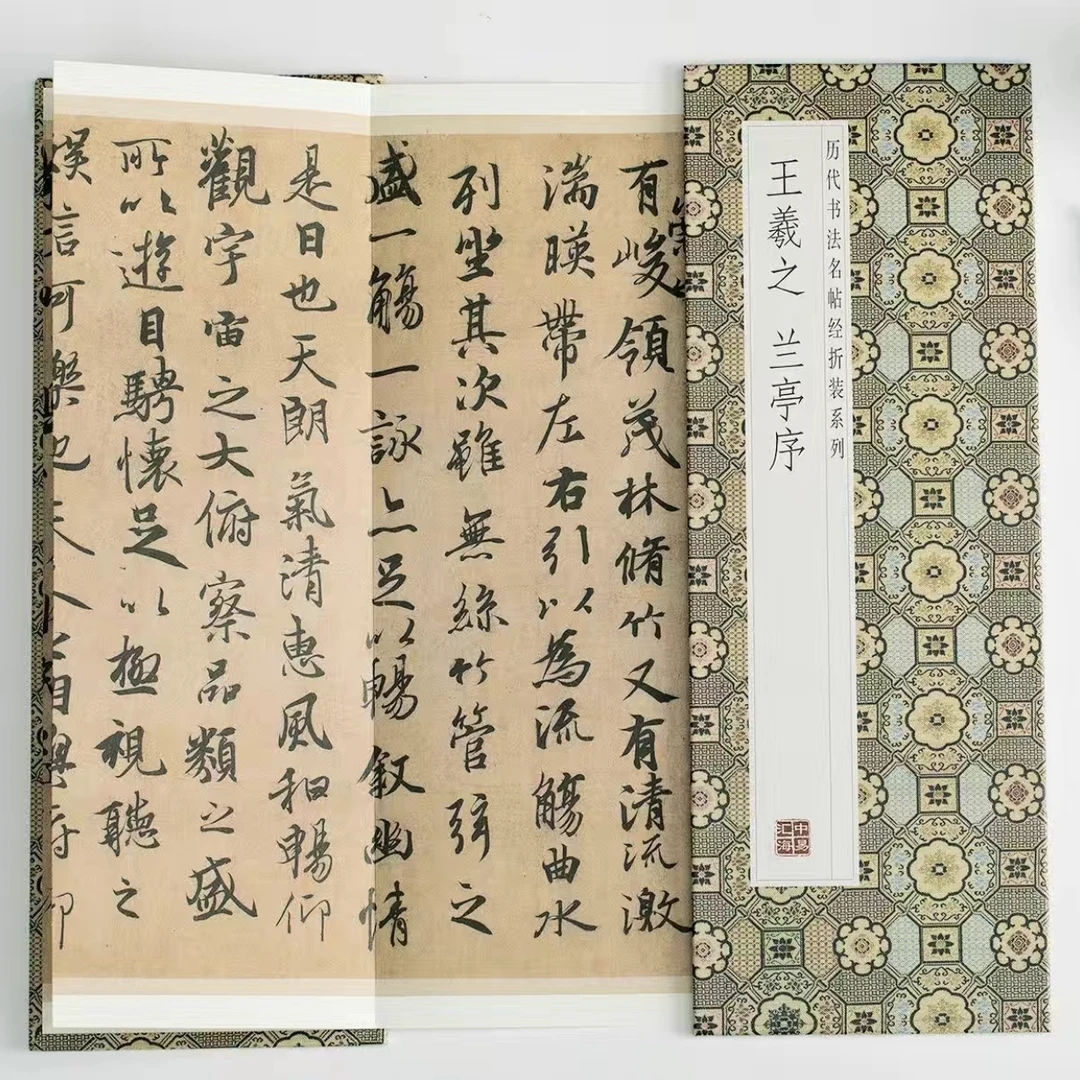 历代书法名帖经折装系列
王羲之 兰亭序
中易汇海
有峻領茂林脩竹又有清流激
湍暎帶左右引以為流觴曲水
列坐其次雖無絲竹管弦之
盛一觴一詠亦足以暢敘幽情
是日也天朗氣清惠風和暢仰
觀宇宙之大俯察品類之盛
所以遊目騁懷足以極視聽之
娛信可樂也夫人之相與俯仰